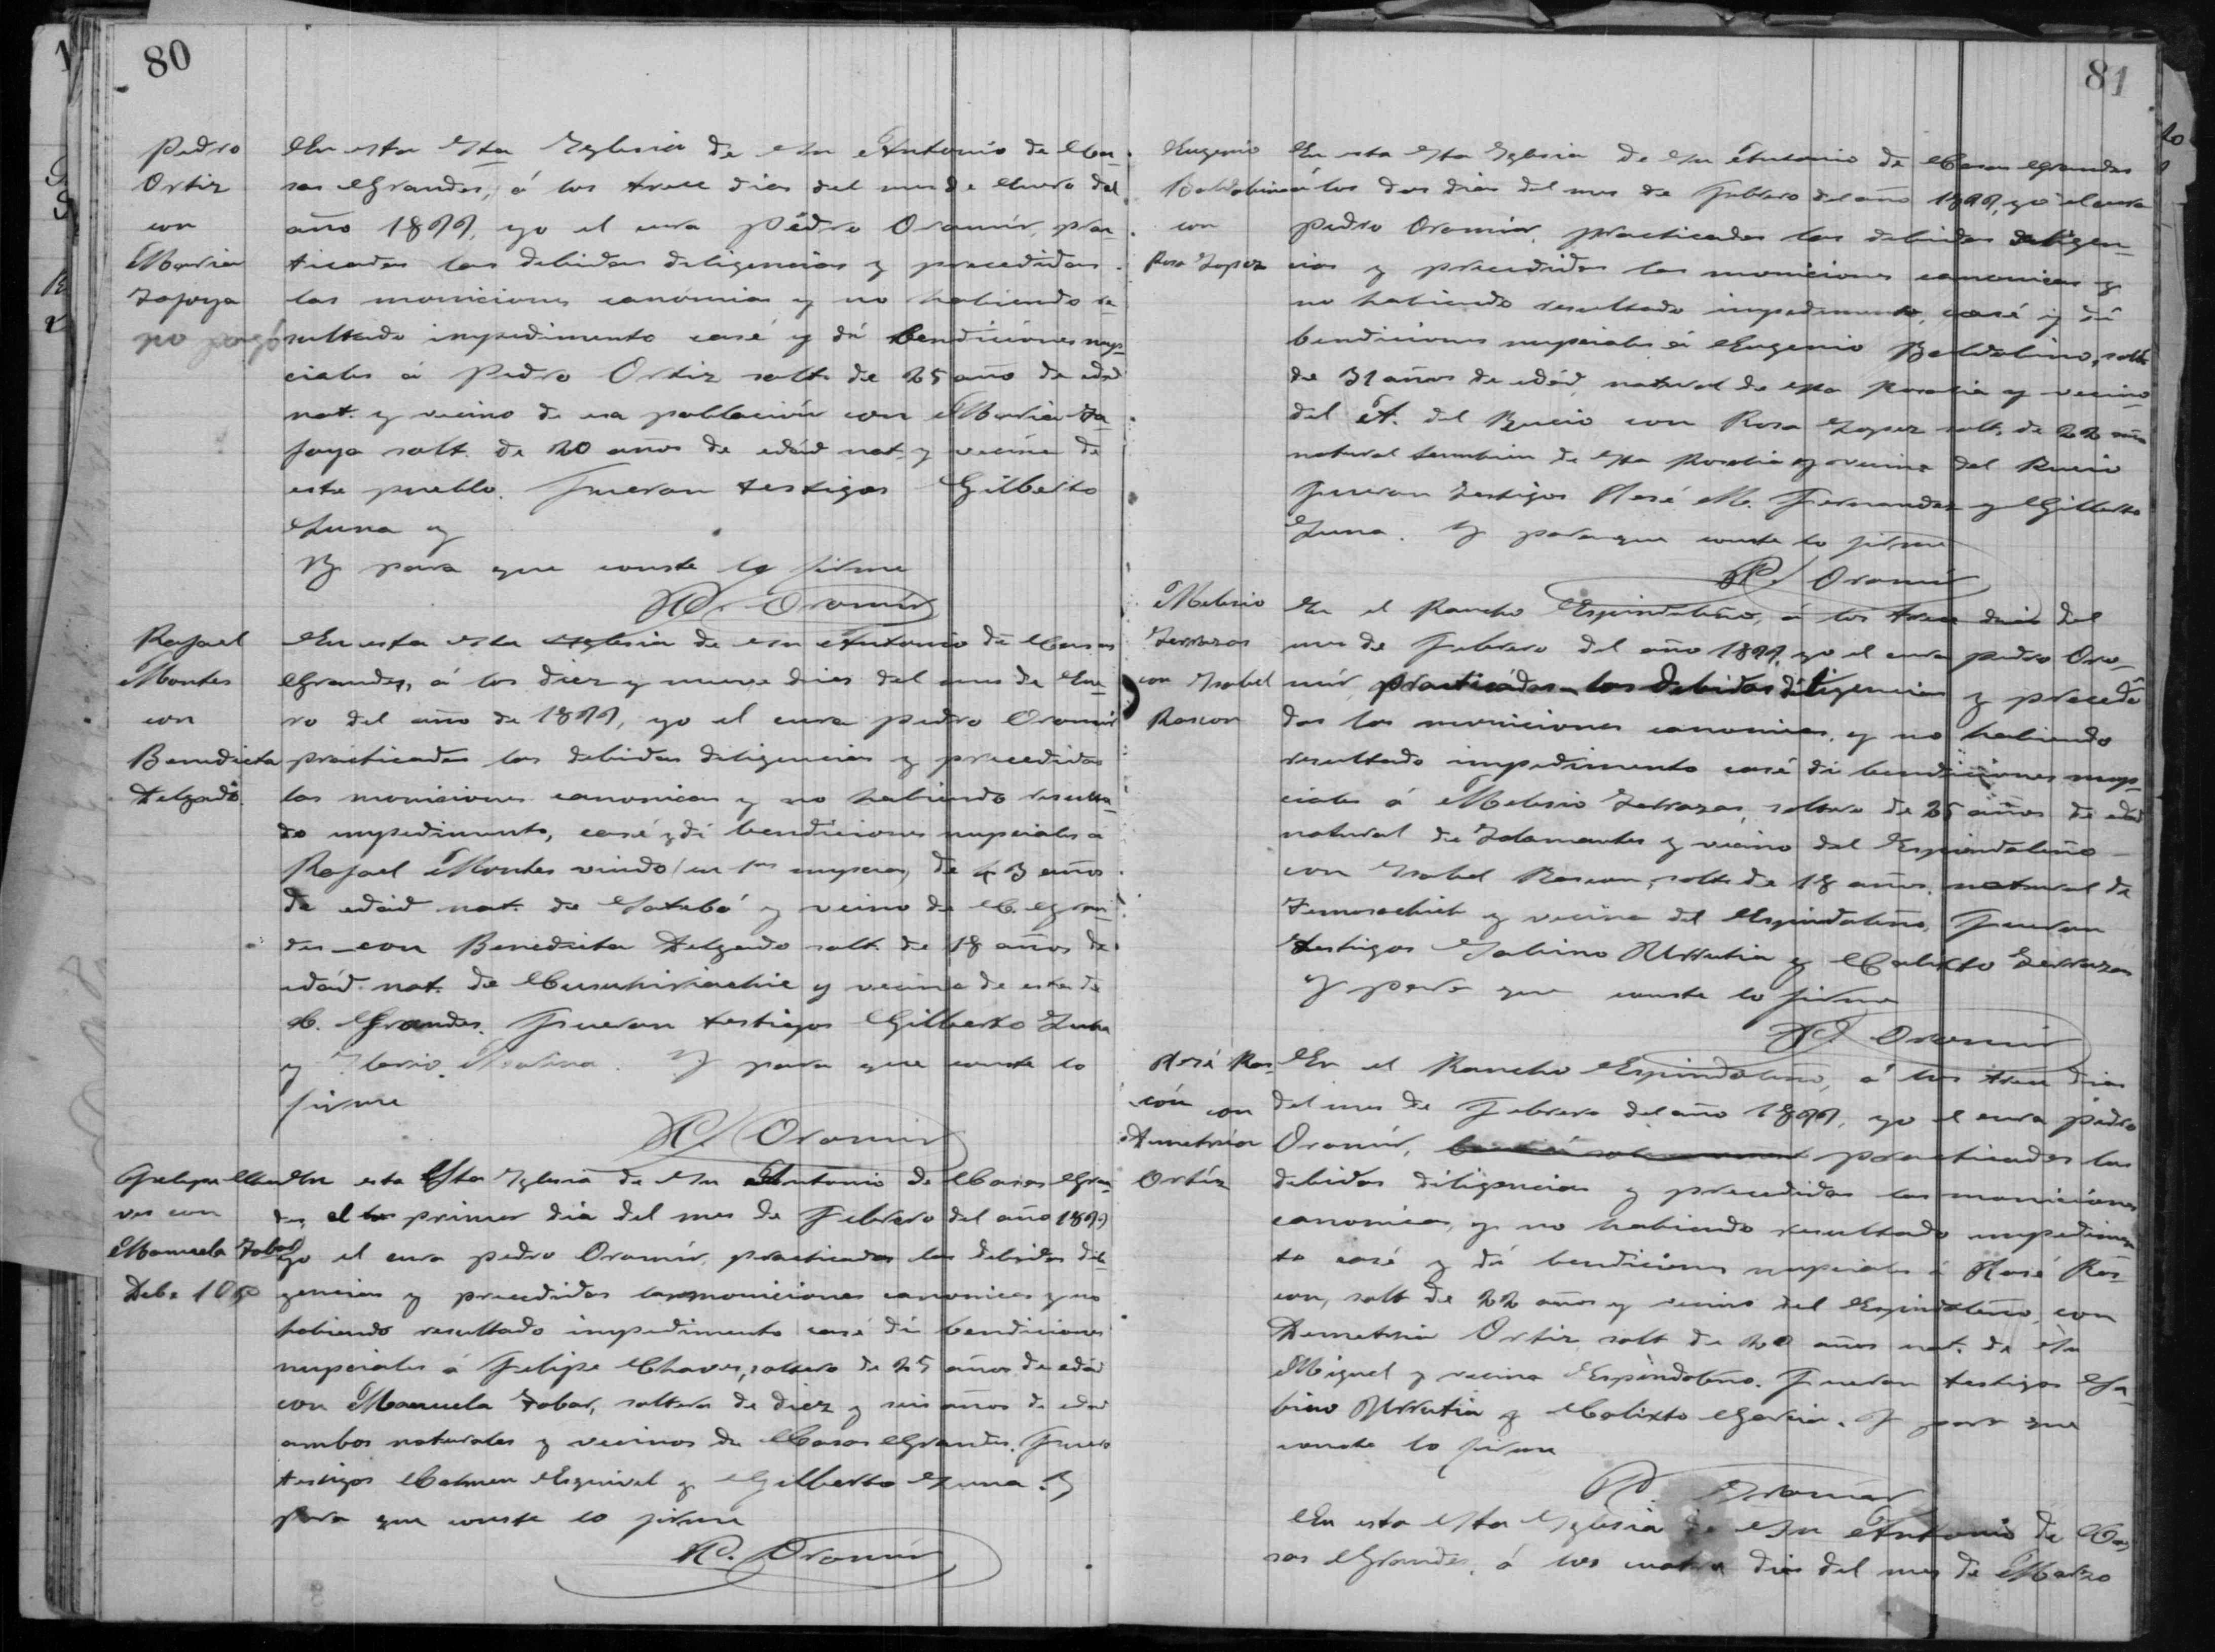 80
Pedro
Ortiz
con
Maria
Tafoya
no pagó
En esta Sta Iglesia de Sn Antonio de Ca-
sas Grandes, á los trece dias del mes de Enero del
año 1899, yo el cura Pedro Oromír, prac-
ticadas las debidas deligencias y precedidas
las moniciones canónicas y no habiendo re-
sultado impedimento casé y dí bendiciónes nup-
ciales á Pedro Ortiz solt. de 25 año de edad
nat. y vecino de esa poblacion con Maria Ta-
foya solt. de 20 años de edád nat. y vecina de
este pueblo. Fueron testigos Gilberto
Luna y
Y para que conste lo firme
P. Oromír
Rafael
Montes
con
Benedicta
Delgado.
En esta Sta Iglesia de Sn Antonio de Casas
Grandes, á los diez y nueve dias del mes de Ene-
ro del año de 1899, yo el cura Pedro Oromír
practicadas las debidas diligencias y precedidas
las moniciones canonicas y no habiendo resulta-
do impedimento, casé y dí bendiciones nupciales a
Rafael Montes viudo en 1as nupcias, de 43 años
de edád nat. de Satebó y vecino de C. Gran-
des con Benedicta Delgado solt. de 18 años de
edád nat. de Cusuhiriachic y vecina de esta de
C. Grandes. Fueron testigos Gilberto Luna
y Y para que conste lo
firme
P. Oromir
Felipe Cha-
ves con
Manuela Tobar
Debe 10
En esta Sta Iglesia de Sn Antonio de Casas Gran-
des, el primer dia del mes de Febrero del año 1899
yo el cura Pedro Oromír, practicadas las debidas dili-
gencias y precedidas las moniciones canonicas y no
habiendo resultado impedimento casé dí bendiciones
nupciales á Felipe Chaves, soltero de 25 años de edad
con Manuela Tobar, soltera de diez y seis años de edad
ambos naturales y vecinos de Casas Grandes. Fuero
testigos Carmen Esquivel y Gilberto Luna. Y
para que conste lo firme
P. Oromír
81
Eugenio
Baldolino
con
Rosa Lopez
En esta Sta Iglesia de Sn Antonio de Casas Grandes
á los dos dias del mes de Febrero del año 1899, yo el cura
Pedro Oromir, practicadas las debidas deligen-
cias y precedidas las moniciones canonicas y
no habiendo resultado impedimento, casé y dí
bendiciones nupciales á Eugenio Baldolino, solt.
de 31 años de edád, natural de Sta Rosalia y vecino
del A. del Rucio con Rosa Lopez solt. de 22 años
natural tambien de Sta Rosalia y vecina del Rucio
Fueron testigos José M. Fernandez y Gilberto
Luna. Y para que conste lo firme
P. Oromír
Melesio
Terrazas
con Isabel
Rascon
En el Rancho Espindoleño, á los trece dias del
mes de Febrero del año 1899, yo el cura Pedro Oro-
mír, practicádas las debidas diligencias y precedi-
das las moniciones canonicas, y no habiendo
resultado impedimento casé dí bendiciónes nup-
ciales á Melesio Terrazas, soltero de 25 años de edad
natural de y vecino del Espindoleño
con Isabel Rascon, solt. de 18 años, natural de
Temosachich y vecina del Espindoleño. Fueron
testigos Sabino Urrutia y Calixto Terrazas
Y para que conste lo firme
P. Oromir
José Ras-
cón con
Demetria
Ortíz
En el Rancho Espindoleño, á los trece dias
del mes de Febrero del año 1899, yo el cura Pedro
Oromír, practicadas las
debidas diligencias y precedidas las moniciones
canonicas, y no habiendo resultado impedimen
to casé y dí bendiciones nupciales á José Ras-
con, solt. de 22 años y vecino del Espindoleño, con
Demetria Ortiz solt de 20 años nat. de Sn
Miguel y vecina Espindoleño. Fueron testigos Sa-
bino Urrutia y Calixto Garcia. Y para que
conste lo firme
P. Oromír
En esta Sta Iglesia de Sn Antonio de Ca-
sas Grandes, á los cuatro dias del mes de Marzo